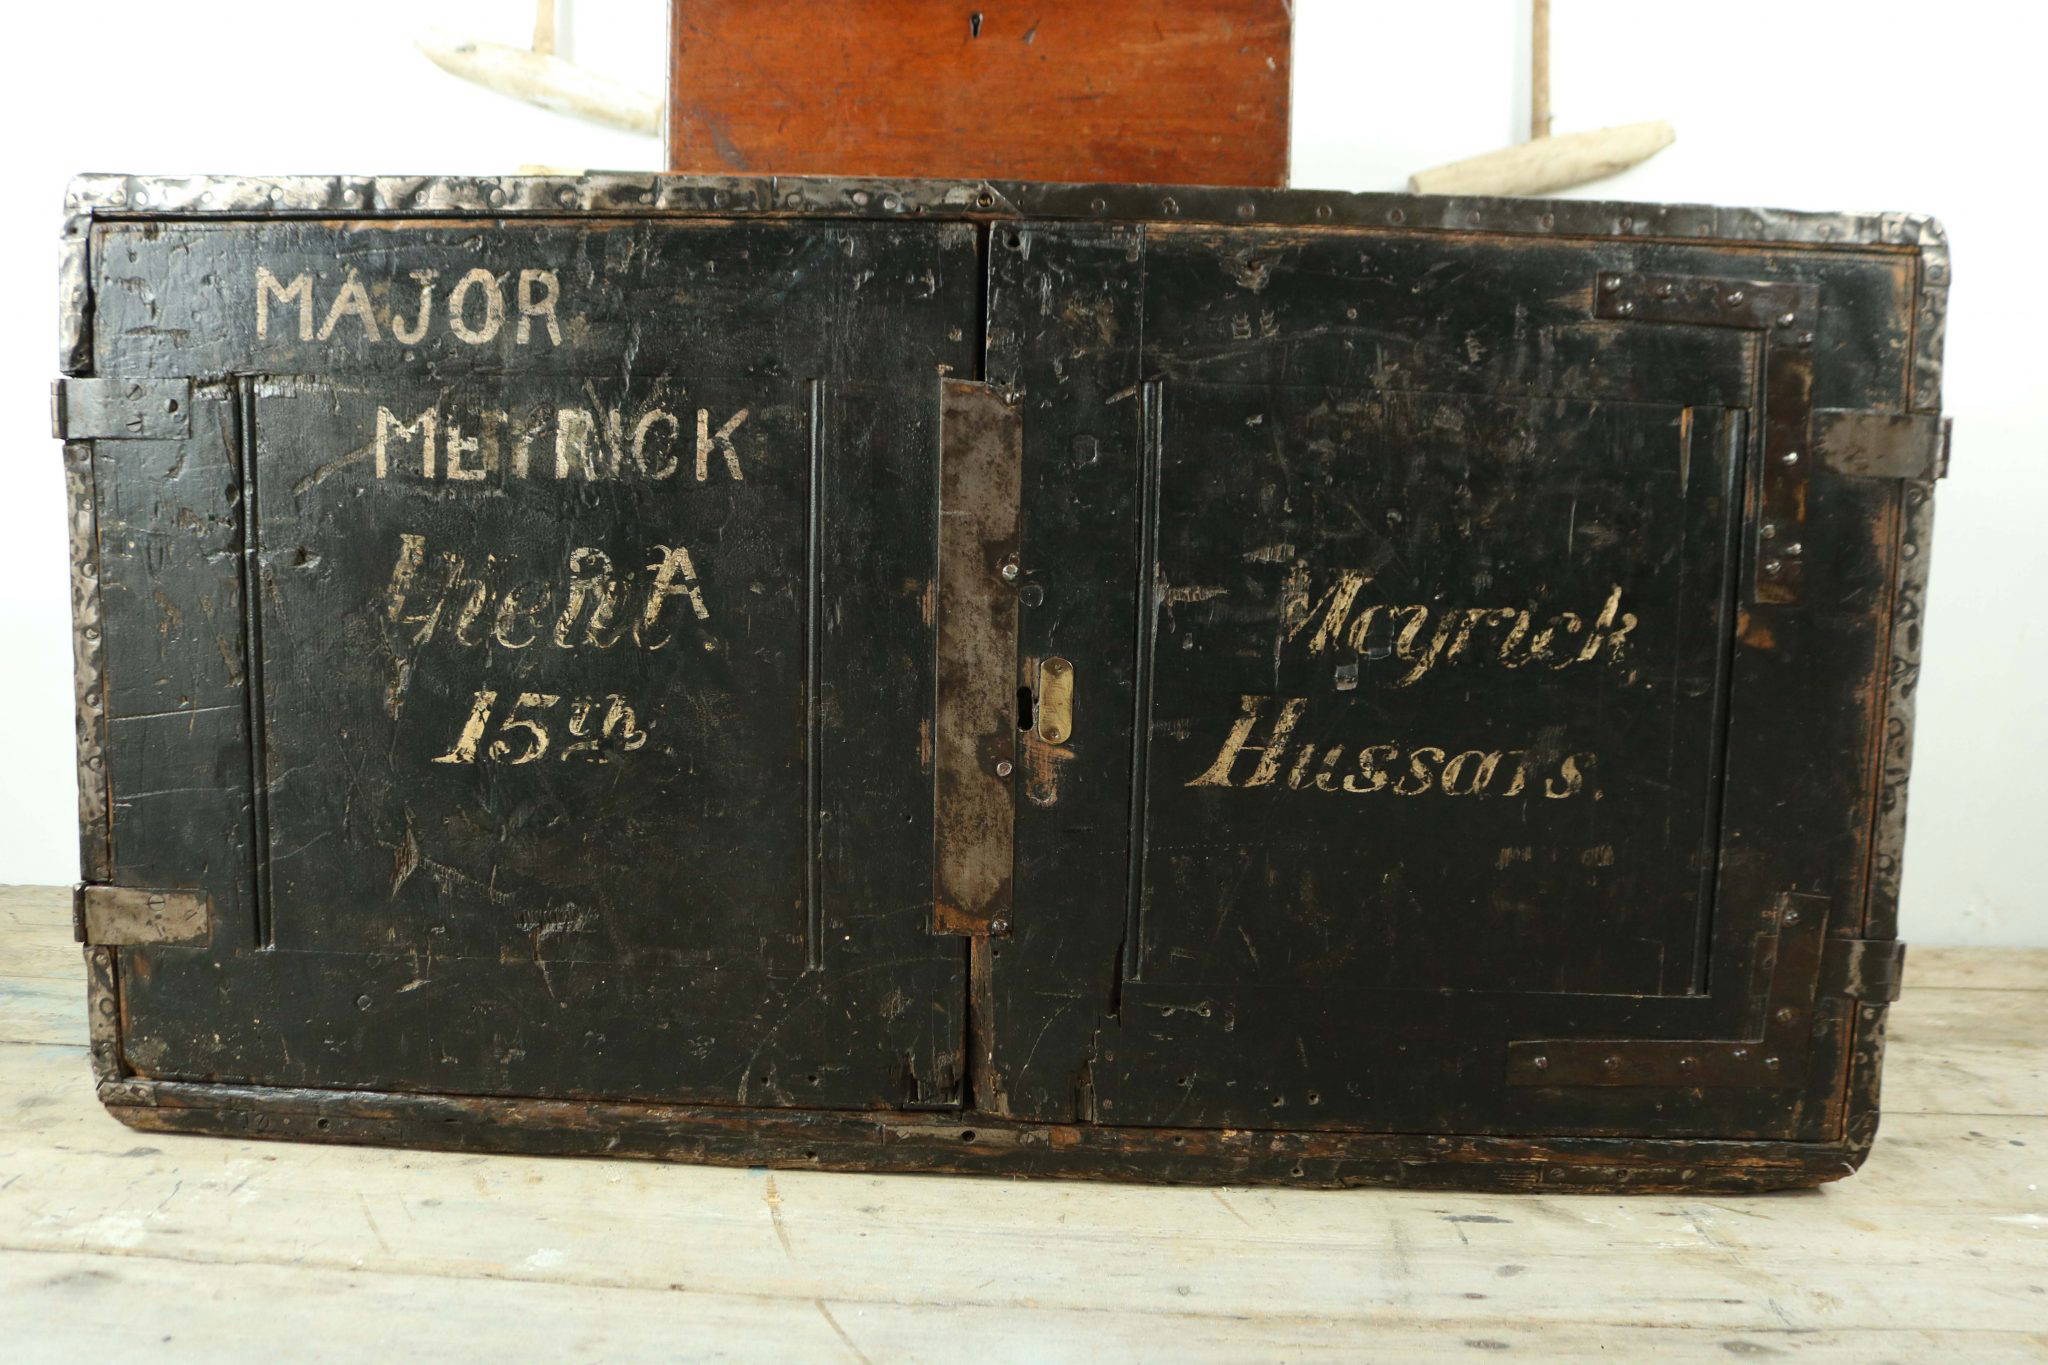 MAJOR
MEYRICK
R A
Lieut. Meyrick
15th Hussars.